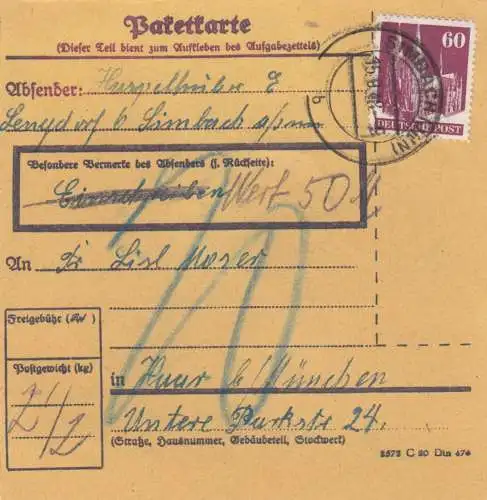 Paketkarte
(Dieser Teil dient zum Aufkleben des Aufgabezettels)
60
DEUTSCHE POST
SIMBACH (INN)
b
Absender: E
b Simbach a/Inn
Besondere Vermerke des Absenders (s. Rückseite):
Einschreiben Wert 50 M
An Fr Lisl Moser
Freigebühr
Postgewicht (kg)
in Haar b/München
Untere Parkstr 24.
(Straße, Hausnummer, Gebäudeteil, Stockwerk)
C 20 Din 476